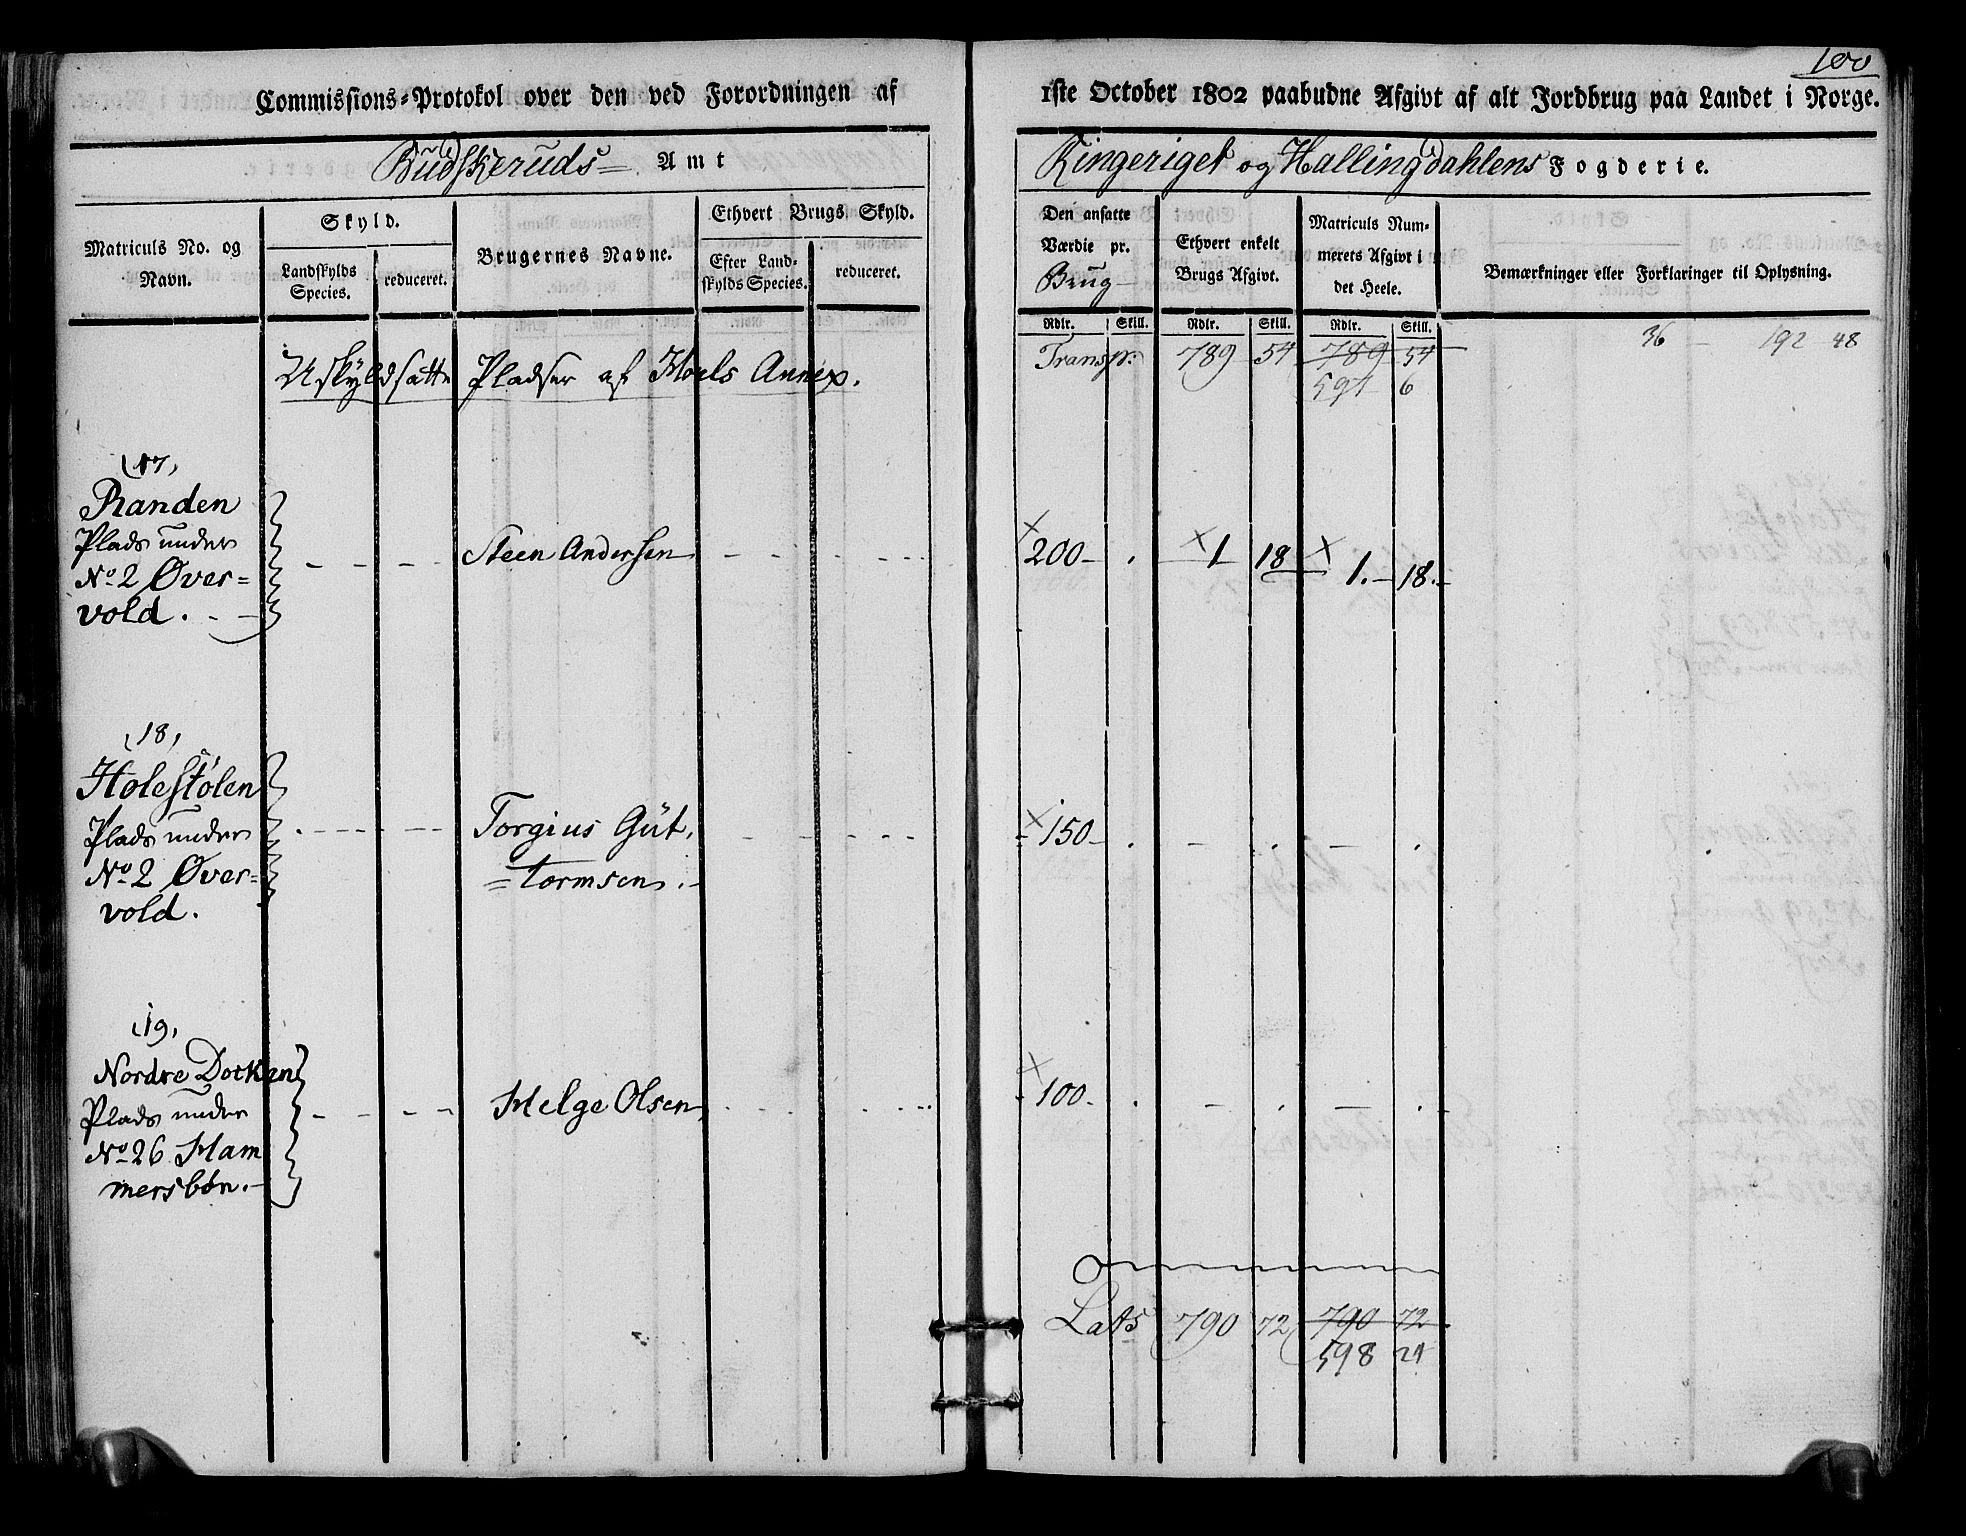 100
Commissions-Protokol over den ved Forordningen af 1ste October 1802 paabudne Afgivt af alt Jordbrug paa Landet i Norge.
Budskeruds Amt
Ringeriget og Hallingdahlens Fogderie.
Matriculs No. og Navn.
Skyld.
Landskylds Species.
reduceret.
Brugernes Navne.
Ethvert Brugs Skyld.
Efter Landskylds Species.
reduceret.
Den ansatte Værdie pr. Brug
Ethvert enkelt Brugs Afgivt.
Matriculs Nummerets Afgivt i det Heele.
Bemærkninger eller Forklaringer til Oplysning.
Rdlr. Skill. Rdlr. Skill. Rdlr. Skill.
Uskyldsatte Pladser af Hoels Annex.
Transp: 789 54 789 54 36 192 48
594 6
17,
Randen
Plads under
No 2 Øver=
vold.
Steen Andersen 200 1 18 1. 18.
18,
Holestølen
Plads under
No 2 Øver=
vold.
Torgius Gut,
=tormsen. 150
19,
Nordre Dokken
Plads under
No 26 Ham
mersbøn.
Helge Olsen 100
Lats 790 72 790 72
598 24